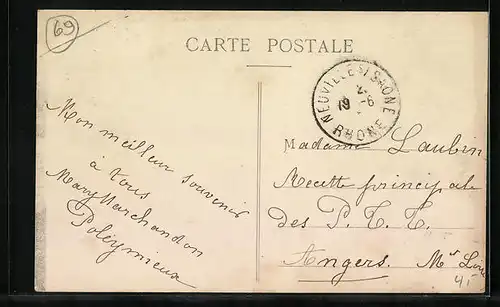 69
CARTE POSTALE
NEUVILLE S/ SAONE
2
19 -6
RHONE
Mon meilleur souvenir
à tous
Mary Marchandon
Poleymieux
Madame Laubin
Recette principale
des P. T. T.
Angers. M. et Loire